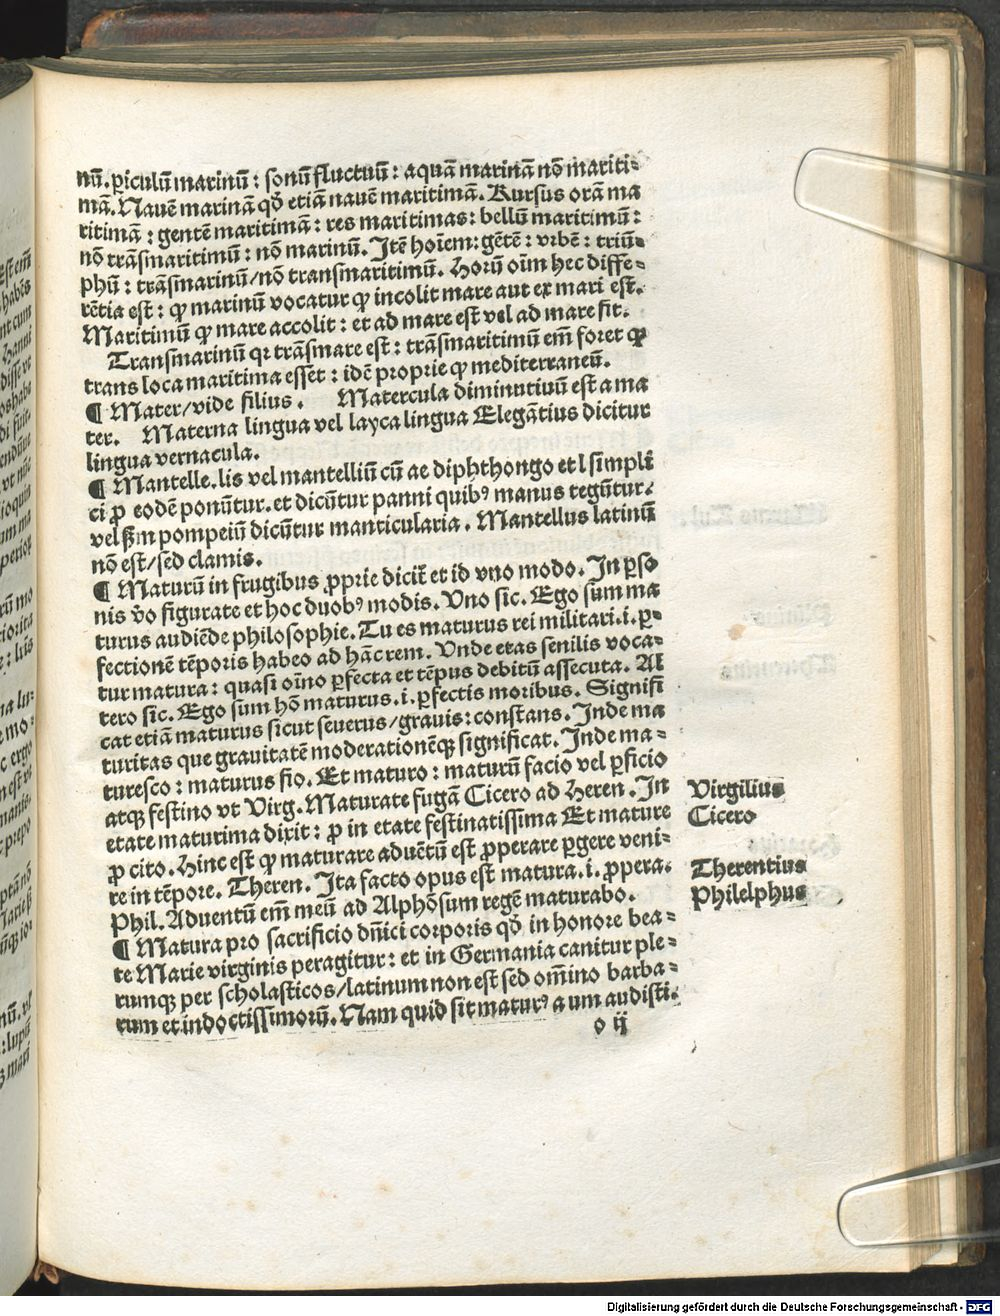 nū. ꝑiculū marinū : sonū fluctuū : aquā marinā nō mariti⸗
mā. Nauē marinā qđ etiā nauē maritimā. Rursus orā ma
ritimā : gentē maritimā : res maritimas : bellū maritimū :
nō trāsmaritimū : nō marinū. Itē hoīem : gētē : vrbē : triū⸗
phū : trāsmarinū/nō transmaritimū. Horū oīm hec diffe⸗
rētia est : ꝙ marinū vocatur ꝙ incolit mare aut ex mari est.
Maritimū ꝙ mare accolit : et ad mare est vel ad mare fit.
Transmarinū qꝛ trāsmare est : trāsmaritimū em̄ foret ꝙ
trans loca maritima esset : idē proprie ꝙ mediterraneū.
¶ Mater/vide filius. Matercula diminutiuū est a ma
ter. Materna lingua vel layca lingua Elegātius dicitur
lingua vernacula.
¶ Mantelle.lis vel mantelliū cū ae diphthongo et l simpli
ci ꝓ eodē ponūtur. et dicūtur panni quibꝰ manus tegūtur.
vel ẞm pompeiū dicūtur manticularia. Mantellus latinū
nō est/sed clamis.
¶ Maturū in frugibus ꝓprie dicit̄ et id vno modo. In ꝑso
nis v̄o figurate et hoc duobꝰ modis. Vno sic. Ego sum ma
turus audiēde philosophie. Tu es maturus rei militari.i. ꝑ⸗
fectionē tēporis habeo ad hāc rem. Vnde etas senilis voca⸗
tur matura : quasi oīno ꝑfecta et tēpus debitū assecuta. Al
tero sic. Ego sum hō maturus.i. ꝑfectis moribus. Signifi
cat etiā maturus sicut seuerus/grauis : constans. Inde ma
turitas que grauitatē moderationēqꝫ significat. Inde ma⸗
turesco : maturus fio. Et maturo : maturū facio vel ꝑficio
atqꝫ festino vt Virg. Maturate fugā Cicero ad Heren. In
etate maturima dixit : ꝓ in etate festinatissima Et mature
ꝓ cito. Hinc est ꝙ maturare aduētū est ꝓperare ꝑgere veni⸗
re in tēpore. Theren. Ita facto opus est matura.i. ꝓpera.
Phil. Aduentū em̄ meū ad Alphōsum regē maturabo.
¶ Matura pro sacrificio dn̄ici corporis qđ in honore bea⸗
te Marie virginis peragitur : et in Germania canitur ple⸗
rumqꝫ per scholasticos/latinum non est sed om̄ino barba⸗
rum et indoctissimorū. Nam quid sit maturꝰ a um audisti.
o ij
Virgilius
Cicero
Therentius
Philelphus
Digitalisierung gefördert durch die Deutsche Forschungsgemeinschaft - DFG